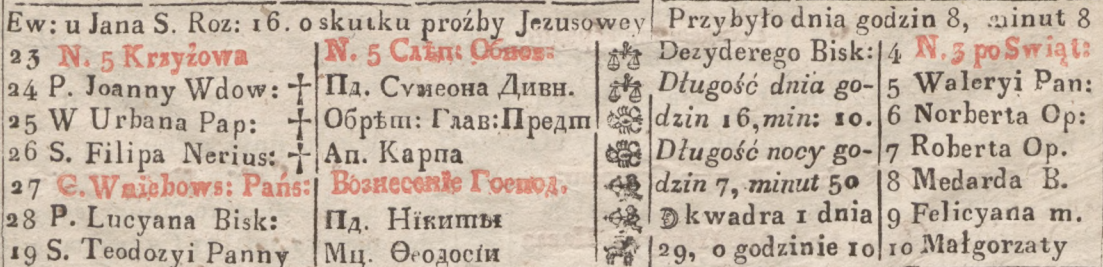 Ew: u Jana S. Roz: 16. o skutku proźby Jezusowey Przybyło dnia godzin 8, minut 8
23 N. 5 Krzyżowa N. 5 Слѣп: Обнов: Dezyderego Bisk: 4 N. 3 po Swiąt:
24 P. Joanny Wdow: † Пд. Сѵмеона Дивн. Długość dnia go- 5 Waleryi Pan:
25 W Urbana Pap: † Обрѣт: Глав: Предт dzin 16, min: 10. 6 Norberta Op:
26 S. Filipa Nerius: † Ап. Карпа Długość nocy go- 7 Roberta Op.
27 C. Wniebows: Pańs: Вознесение Господ. dzin 7, minut 50 8 Medarda B.
28 P. Lucyana Bisk: Пд. Нїкиты ☽ kwadra 1 dnia 9 Felicyana m.
19 S. Teodozyi Panny Мц. Ѳеодосіи 29, o godzinie 10 10 Małgorzaty